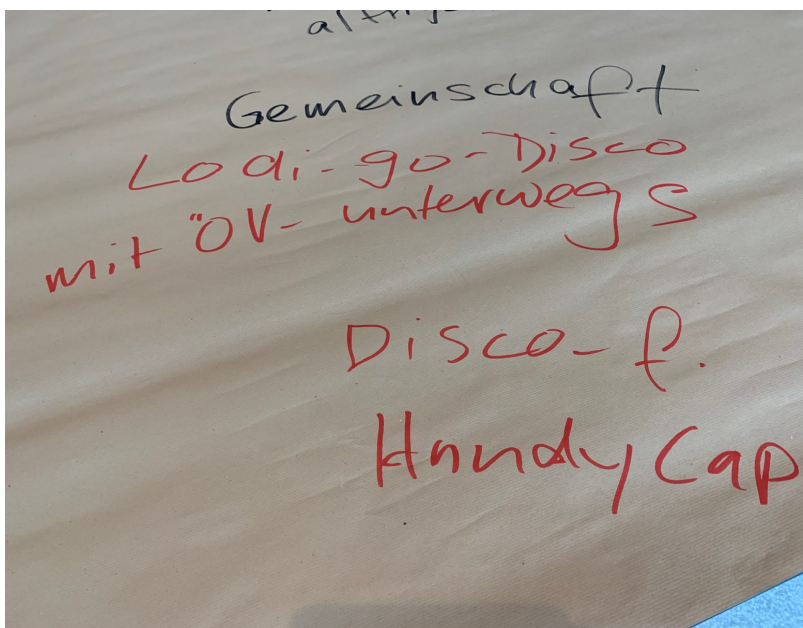 Gemeinschaft
Lodi-go-Disco
mit ÖV- unterwegs
Disco- f.
HandyCap